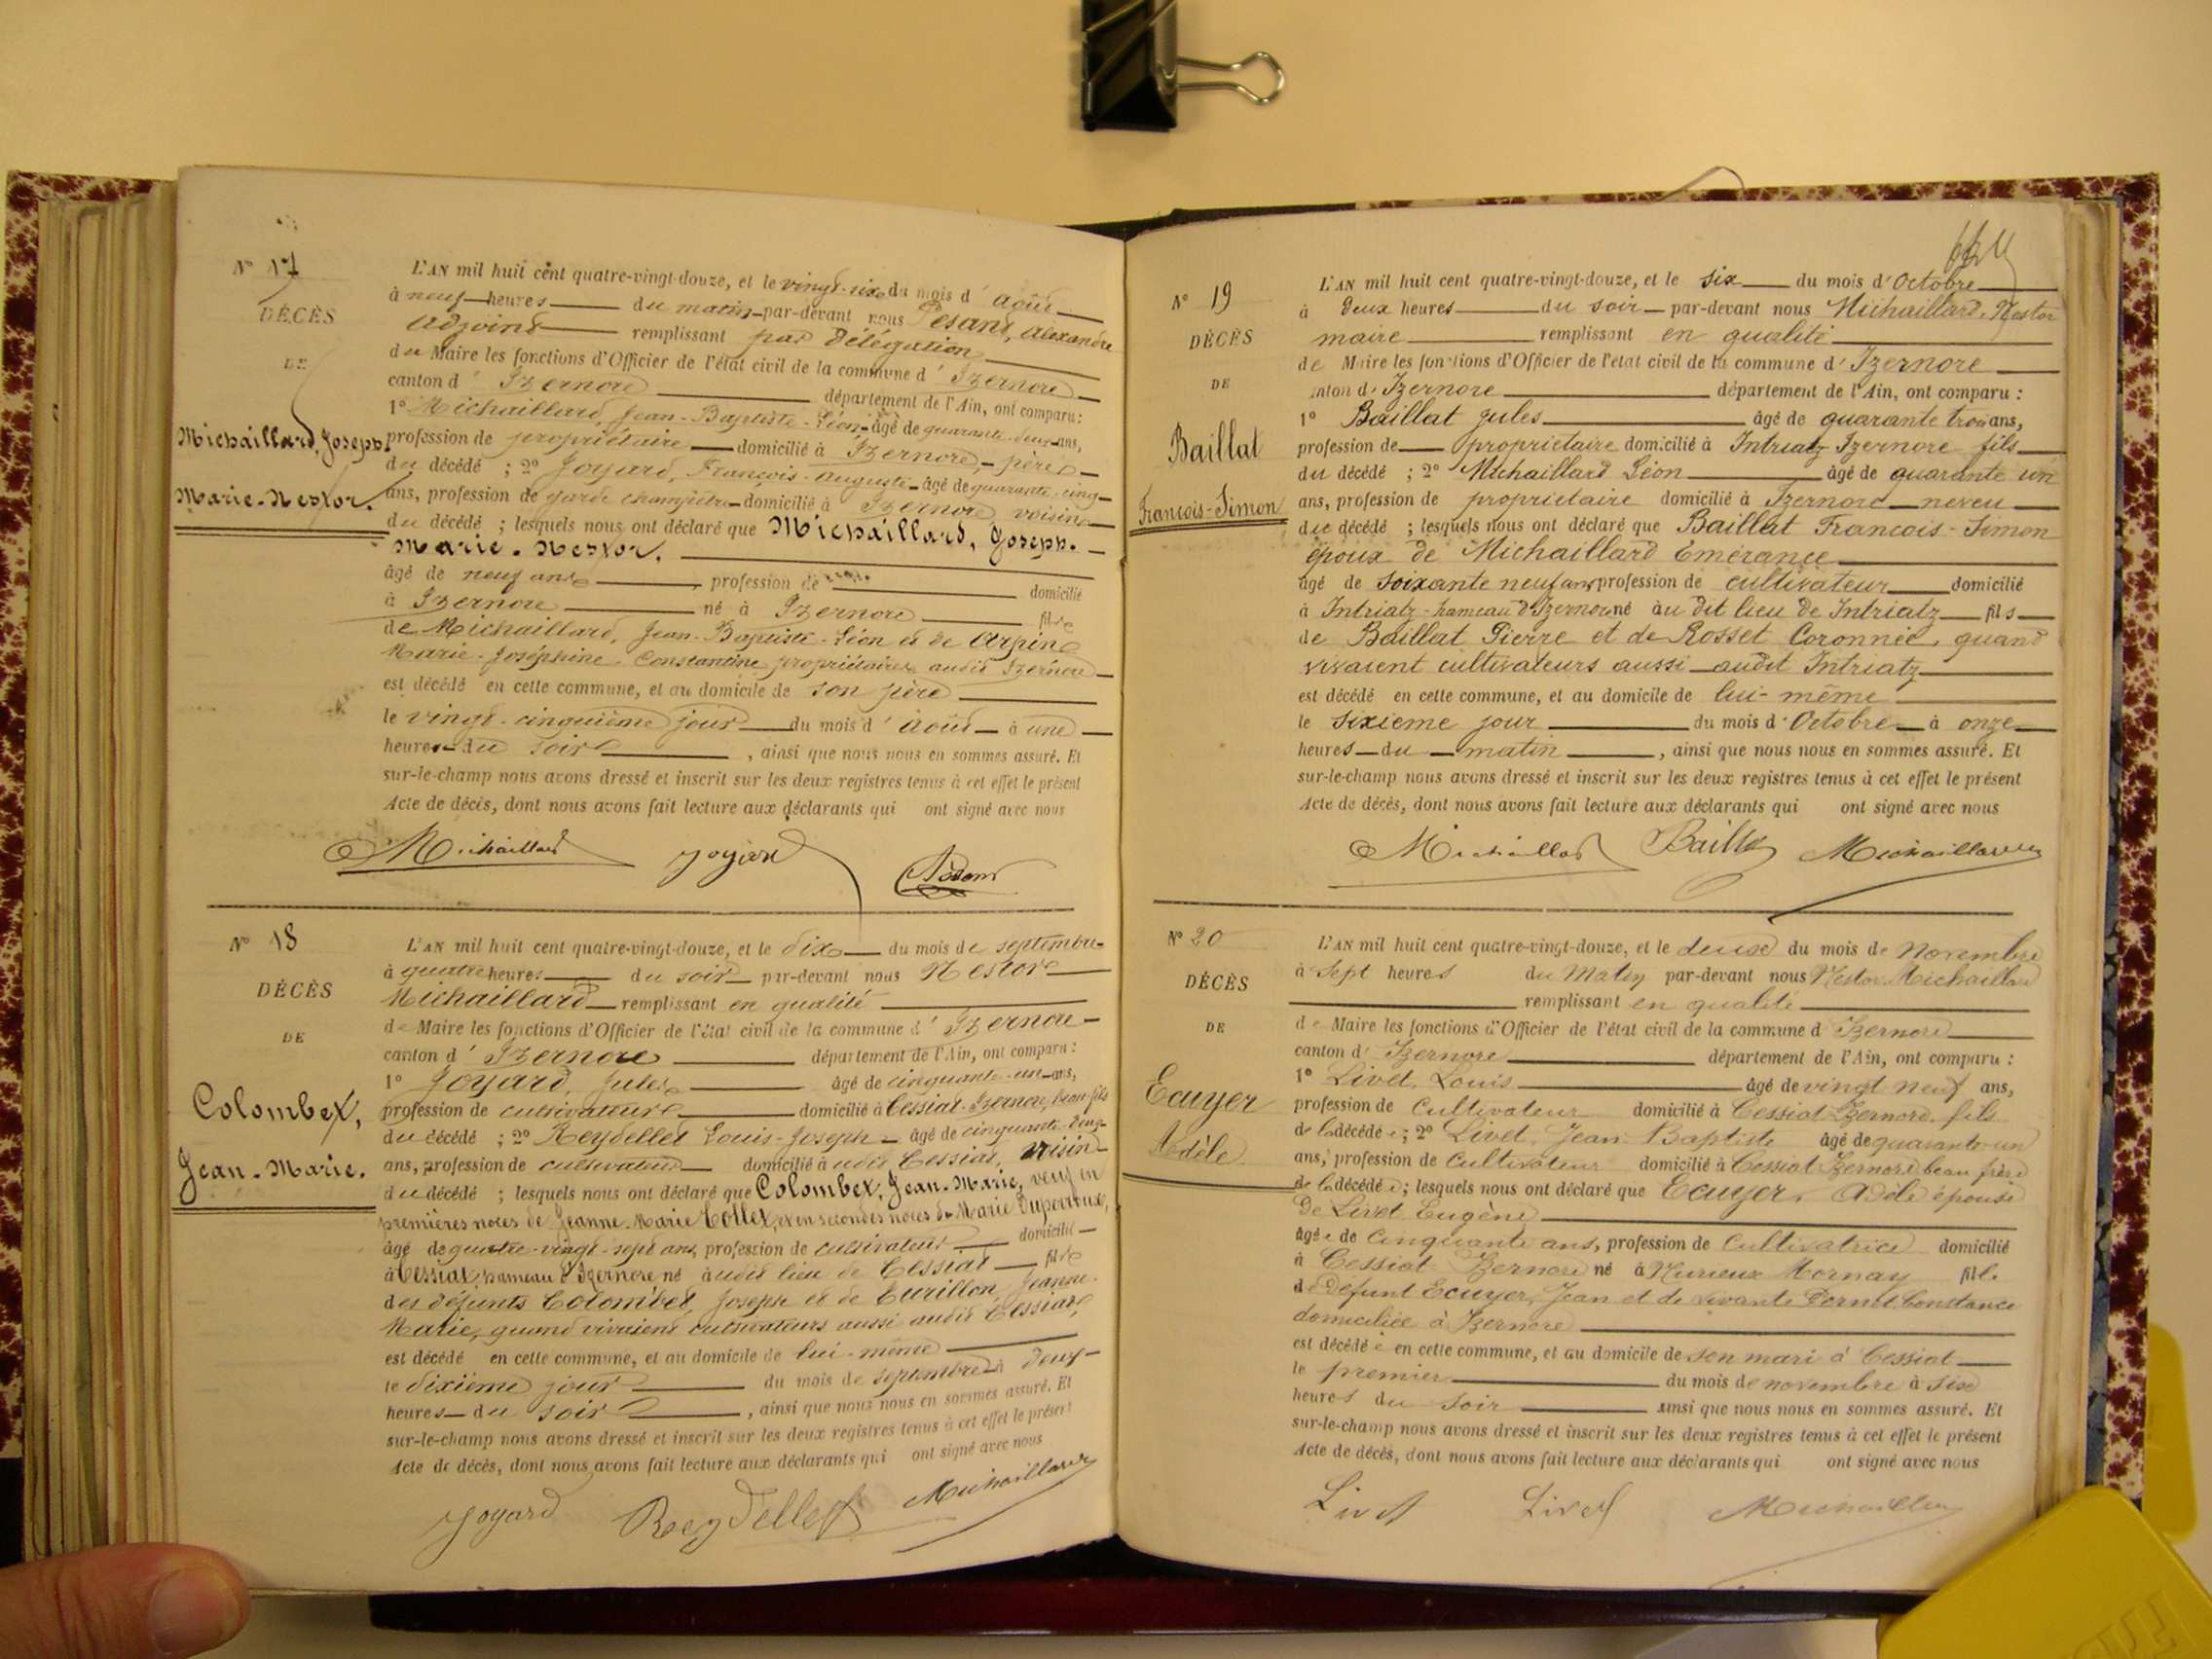 N° 17
DÉCÈS
DE
Michaillard, Joseph
Marie-Nestor.
L'AN mil huit cent quatre-vingt-douze, et le vingt-six du mois d' août
à neuf heures du matin par-devant nous Pesant, Alexandre
adjoint remplissant par délégation
du Maire les fonctions d'Officier de l'état civil de la commune d' Izernore
canton d' Izernore département de l'Ain, ont comparu :
1° Michaillard, Jean-Baptiste-Léon âgé de quarante-deux ans,
profession de propriétaire domicilié à Izernore, père
du décédé ; 2° Joyard, François-Auguste âgé de quarante-cinq
ans, profession de garde champêtre domicilié à Izernore voisin
du décédé ; lesquels nous ont déclaré que Michaillard, Joseph-
Marie-Nestor.
âgé de neuf ans profession de domicilié
à Izernore né à Izernore fils
de Michaillard, Jean-Baptiste-Léon et de Arpin
Marie-Joséphine-Constantine propriétaires audit Izernore
est décédé en cette commune, et au domicile de son père
le vingt-cinquième jour du mois d' août à une
heures du soir , ainsi que nous nous en sommes assuré. Et
sur-le-champ nous avons dressé et inscrit sur les deux registres tenus à cet effet le présent
Acte de décès, dont nous avons fait lecture aux déclarants qui ont signé avec nous
Michaillard Joyard
N° 18
DÉCÈS
DE
Colombet,
Jean-Marie.
L'AN mil huit cent quatre-vingt-douze, et le dix du mois de septembre
à quatre heures du soir par-devant nous Nestor
Michaillard remplissant en qualité
de Maire les fonctions d'Officier de l'état civil de la commune d' Izernore
canton d' Izernore département de l'Ain, ont comparu :
1° Joyard, Jules âgé de cinquante-un ans,
profession de cultivateur domicilié à Cessiat-Izernore, beau-fils
du décédé ; 2° Reydellet Louis-Joseph âgé de cinquante-deux
ans, profession de cultivateur domicilié à udit Cessiat, voisin
du décédé ; lesquels nous ont déclaré que Colombet, Jean-Marie, veuf en
premières noces de Jeanne-Marie Collet, et en secondes noces de Marie Duperroux,
âgé de quatre-vingt-sept ans, profession de cultivateur domicilié
à Cessiat, hameau d'Izernore né àudit lieu de Cessiat fils
des défunts Colombet, Joseph et de Curillon, Jeanne-
Marie, quand vivaient cultivateurs aussi audit Cessiat,
est décédé en cette commune, et au domicile de lui-même
le dixième jour du mois de septembre à deux
heures du soir , ainsi que nous nous en sommes assuré. Et
sur-le-champ nous avons dressé et inscrit sur les deux registres tenus à cet effet le présent
Acte de décès, dont nous avons fait lecture aux déclarants qui ont signé avec nous
Joyard Reydellet Michaillard
N° 19
DÉCÈS
DE
Baillat
François-Simon
L'AN mil huit cent quatre-vingt-douze, et le six du mois d' Octobre
à deux heures du soir par-devant nous Michaillard, Nestor
maire remplissant en qualité
de Maire les fonctions d'Officier de l'état civil de la commune d' Izernore
canton d' Izernore département de l'Ain, ont comparu :
1° Baillat jules âgé de quarante trois ans,
profession de propriétaire domicilié à Intriatz Izernore fils
du décédé ; 2° Michaillard Léon âgé de quarante un
ans, profession de propriétaire domicilié à Izernore neveu
du décédé ; lesquels nous ont déclaré que Baillat François-Simon
époux de Michaillard Emérance
âgé de soixante neuf ans profession de cultivateur domicilié
à Intriatz-hameau d'Izernore né àu dit lieu de Intriatz fils
de Baillat Pierre et de Rosset Coronnée, quand
vivaient cultivateurs aussi audit Intriatz
est décédé en cette commune, et au domicile de lui-même
le sixième jour du mois d' Octobre à onze
heures du matin , ainsi que nous nous en sommes assuré. Et
sur-le-champ nous avons dressé et inscrit sur les deux registres tenus à cet effet le présent
Acte de décès, dont nous avons fait lecture aux déclarants qui ont signé avec nous
Michaillard Baillat Michaillard
N° 20
DÉCÈS
DE
Ecuyer
Adèle
L'AN mil huit cent quatre-vingt-douze, et le deux du mois de Novembre
à sept heures du Matin par-devant nous Nestor Michaillard
remplissant en qualité
de Maire les fonctions d'Officier de l'état civil de la commune d Izernore
canton d' Izernore département de l'Ain, ont comparu :
1° Livet, Louis âgé de vingt neuf ans,
profession de Cultivateur domicilié à Cessiat Izernore, fils
de la décédée ; 2° Livet, Jean Baptiste âgé de quarante-un
ans, profession de Cultivateur domicilié à Cessiat Izernore beau frère
de la décédée ; lesquels nous ont déclaré que Ecuyer, Adèle épouse
de Livet Eugène
âgée de Cinquante ans, profession de Cultivatrice domicilié
à Cessiat Izernore né à Nurieux Mornay fille
de défunt Ecuyer, Jean et de vivante Pernod Constance
domiciliée à Izernore
est décédée en cette commune, et au domicile de son mari à Cessiat
le premier du mois de novembre à six
heures du soir ainsi que nous nous en sommes assuré. Et
sur-le-champ nous avons dressé et inscrit sur les deux registres tenus à cet effet le présent
Acte de décès, dont nous avons fait lecture aux déclarants qui ont signé avec nous
Livet Livet Michaillard